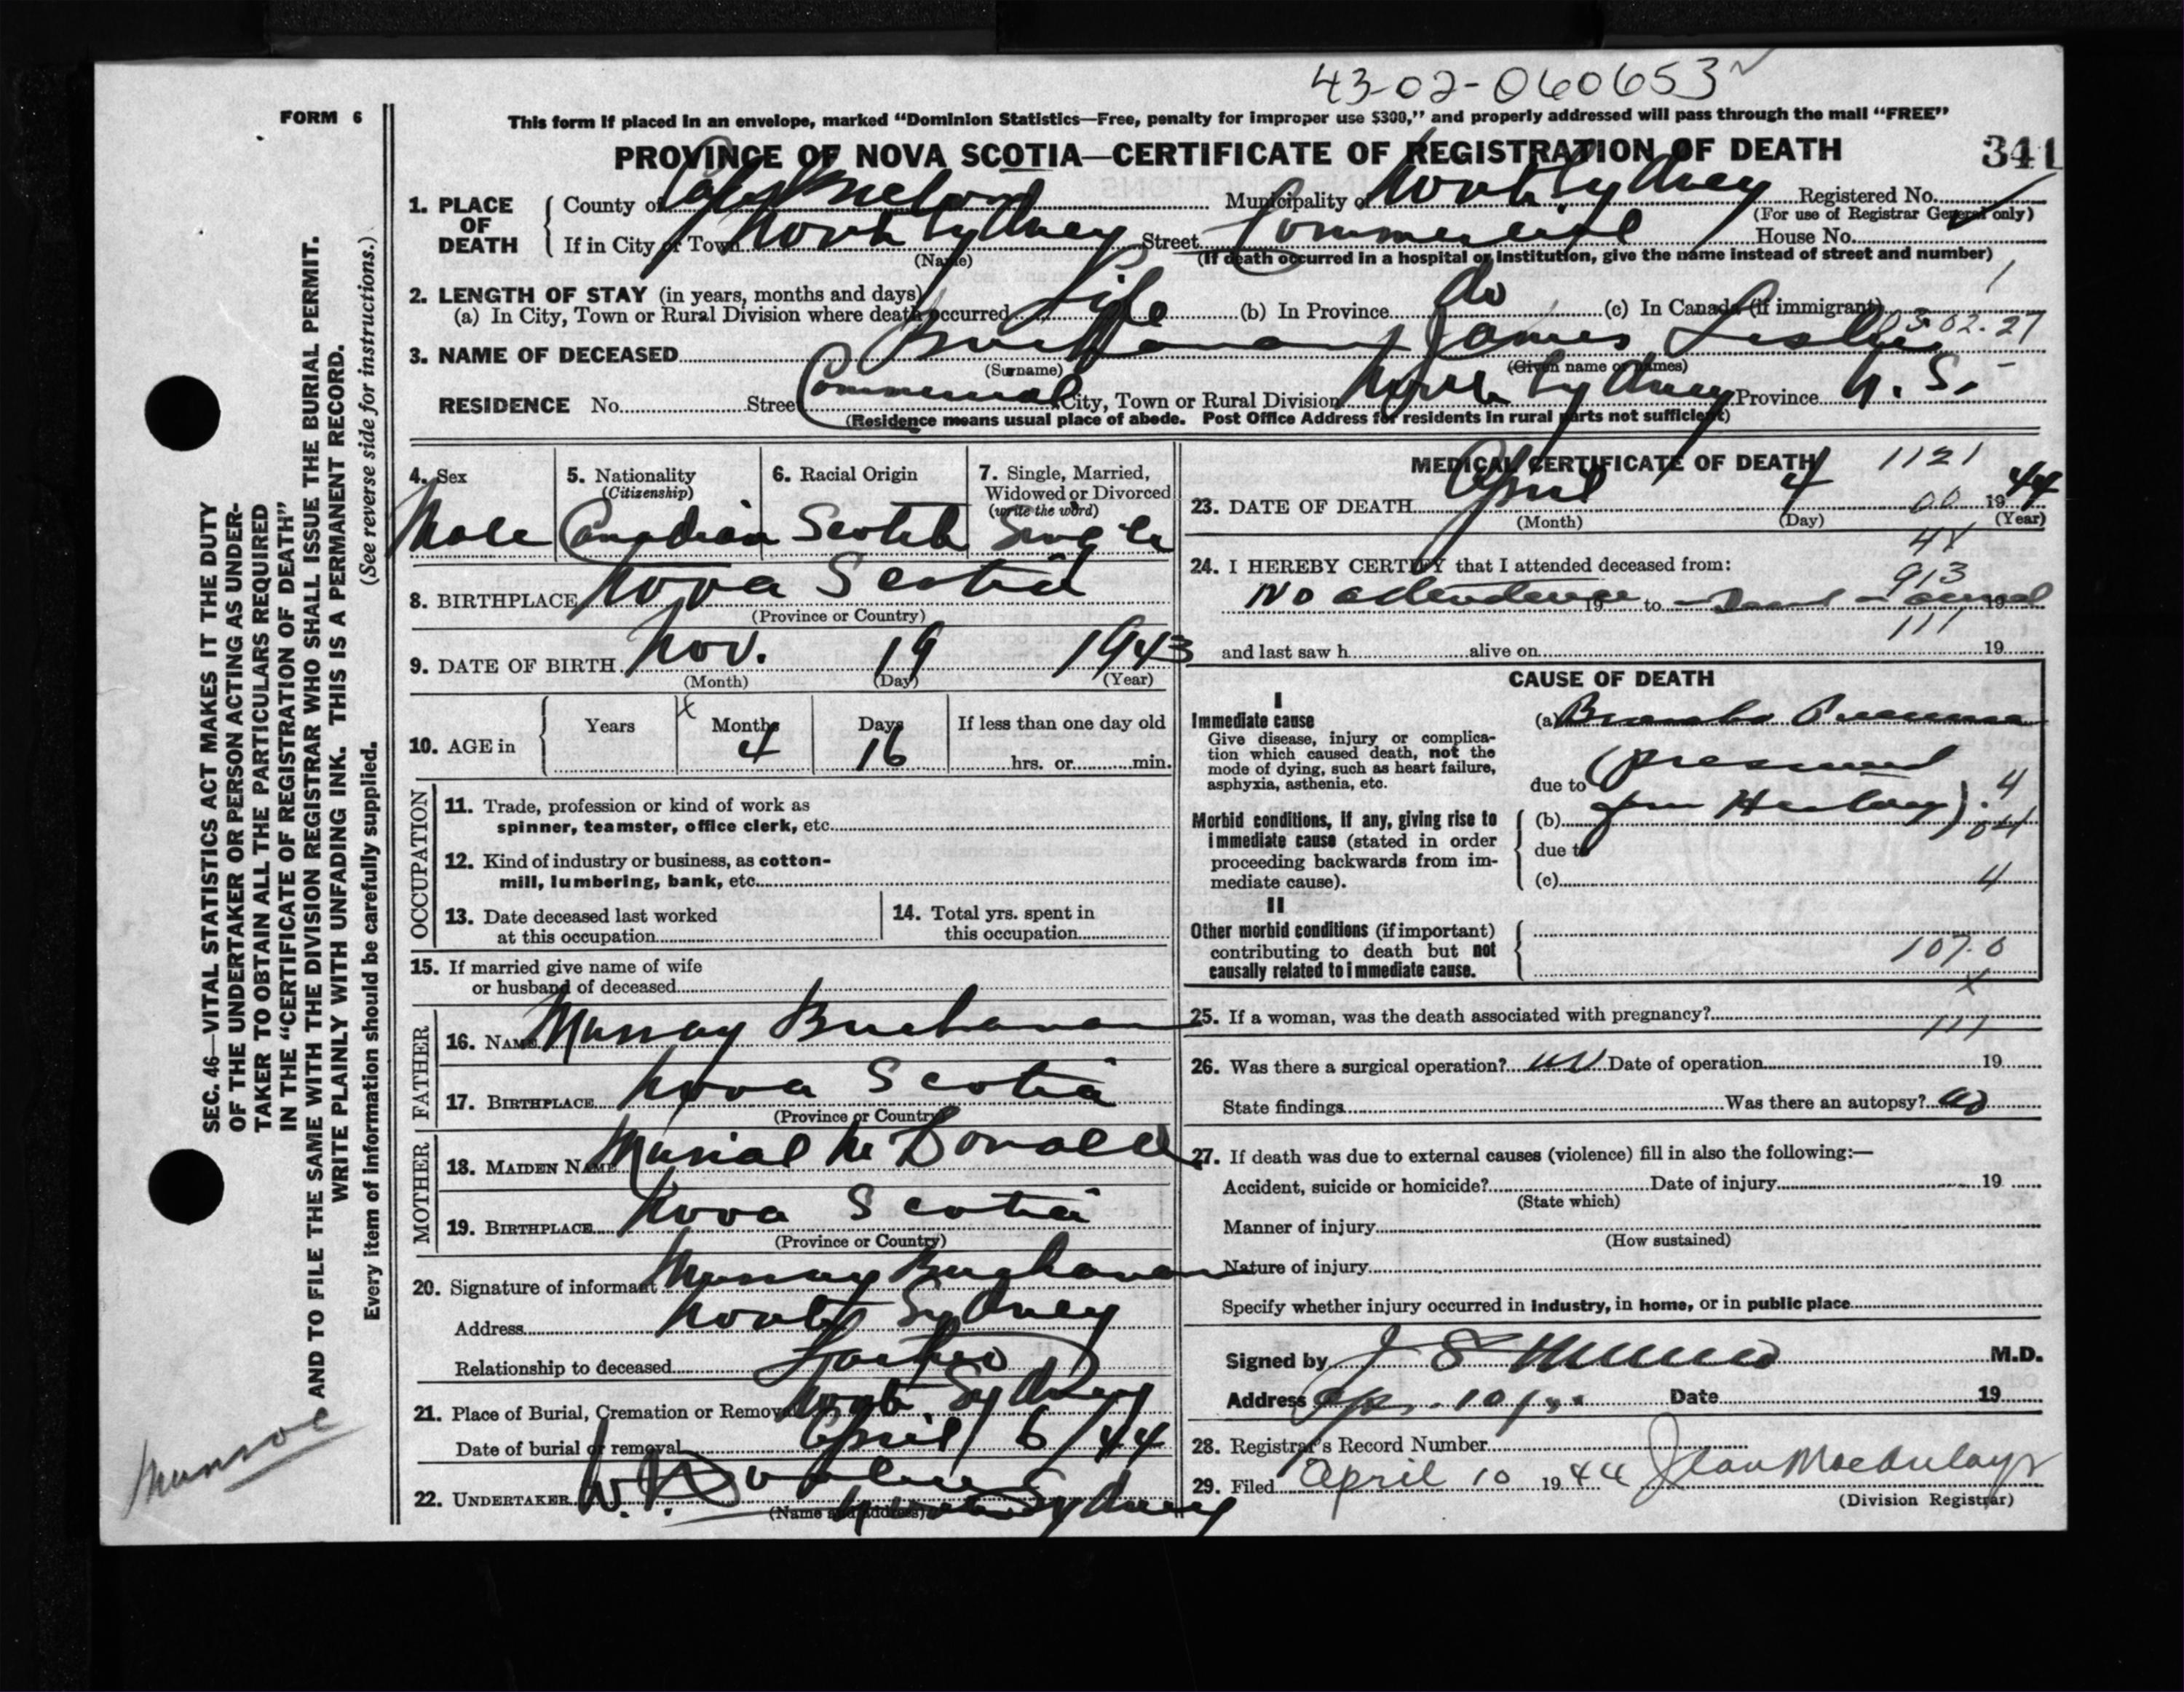 43-02-060653
FORM 6
This form if placed in an envelope, marked “Dominion Statistics—Free, penalty for improper use $300,” and properly addressed will pass through the mail “FREE”
PROVINCE OF NOVA SCOTIA—CERTIFICATE OF REGISTRATION OF DEATH 341
1. PLACE OF DEATH
County of Cape Breton Municipality of North Sydney Registered No.
(For use of Registrar General only)
If in City or Town North Sydney Street Commercial House No.
(Name) (If death occurred in a hospital or institution, give the name instead of street and number)
2. LENGTH OF STAY (in years, months and days)
(a) In City, Town or Rural Division where death occurred Life (b) In Province do (c) In Canada (if immigrant)
3. NAME OF DECEASED Buchanan James Leslie 03.02.27
(Surname) (Given name or names)
RESIDENCE No. Street Commercial City, Town or Rural Division North Sydney Province N.S.
(Residence means usual place of abode. Post Office Address for residents in rural parts not sufficient)
4. Sex 5. Nationality (Citizenship) 6. Racial Origin 7. Single, Married, Widowed or Divorced (write the word)
Male Canadian Scotch Single
8. BIRTHPLACE Nova Scotia
(Province or Country)
9. DATE OF BIRTH Nov. 19 1943
(Month) (Day) (Year)
10. AGE in Years Months Days If less than one day old
4 16 hrs. or min.
OCCUPATION
11. Trade, profession or kind of work as spinner, teamster, office clerk, etc.
12. Kind of industry or business, as cotton-mill, lumbering, bank, etc.
13. Date deceased last worked at this occupation
14. Total yrs. spent in this occupation
15. If married give name of wife or husband of deceased
FATHER
16. NAME Murray Buchanan
17. BIRTHPLACE Nova Scotia
(Province or Country)
MOTHER
18. MAIDEN NAME Murial McDonald
19. BIRTHPLACE Nova Scotia
(Province or Country)
20. Signature of informant Murray Buchanan
Address North Sydney
Relationship to deceased Father
21. Place of Burial, Cremation or Removal North Sydney
Date of burial or removal April 6/44
22. UNDERTAKER W.
(Name and address) North Sydney
MEDICAL CERTIFICATE OF DEATH 1121
23. DATE OF DEATH April 4 00 1944
(Month) (Day) (Year)
24. I HEREBY CERTIFY that I attended deceased from:
913
No attendance 19 to 19
111
and last saw h alive on 19
CAUSE OF DEATH
I
Immediate cause
Give disease, injury or complication which caused death, not the mode of dying, such as heart failure, asphyxia, asthenia, etc.
(a) Broncho Pneumonia
due to (presumed
Morbid conditions, if any, giving rise to immediate cause (stated in order proceeding backwards from immediate cause).
(b) from History). 4
04
due to
(c) 4
II
Other morbid conditions (if important) contributing to death but not causally related to immediate cause.
107.0
x
25. If a woman, was the death associated with pregnancy?
111
26. Was there a surgical operation? no Date of operation 19
State findings Was there an autopsy? no
27. If death was due to external causes (violence) fill in also the following:—
Accident, suicide or homicide? Date of injury 19
(State which)
Manner of injury
(How sustained)
Nature of injury
Specify whether injury occurred in industry, in home, or in public place
Signed by J S Munro M.D.
Address Apr. 10/44 Date 19
28. Registrar's Record Number
29. Filed April 10 1944 Jean
(Division Registrar)
SEC. 46—VITAL STATISTICS ACT MAKES IT THE DUTY
OF THE UNDERTAKER OR PERSON ACTING AS UNDER-
TAKER TO OBTAIN ALL THE PARTICULARS REQUIRED
IN THE “CERTIFICATE OF REGISTRATION OF DEATH”
AND TO FILE THE SAME WITH THE DIVISION REGISTRAR WHO SHALL ISSUE THE BURIAL PERMIT.
WRITE PLAINLY WITH UNFADING INK. THIS IS A PERMANENT RECORD.
Every item of information should be carefully supplied. (See reverse side for instructions.)
Munroe